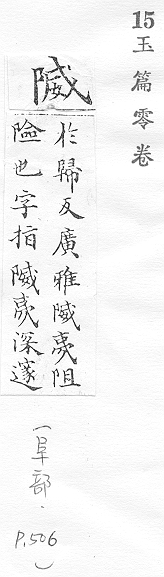 15玉篇零卷
隇
扵歸反廣雅隇夷阻
險也字指隇夷深邃
(阜部.
P.506)